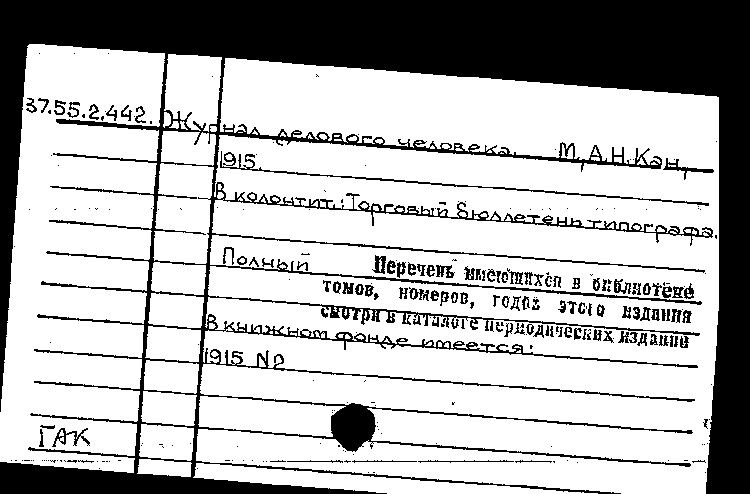 37.55.2.442. Журнал делового человека. М, А.Н.Кан,
1915.
В колонтит.: Торговый бюллетень типографа.
Полный Перечень имеющихся в библиотеке
томов, номеров, годов этого издания
смотри в каталоге периодических изданий
В книжном фонде имеется:
1915 N2
ГАК